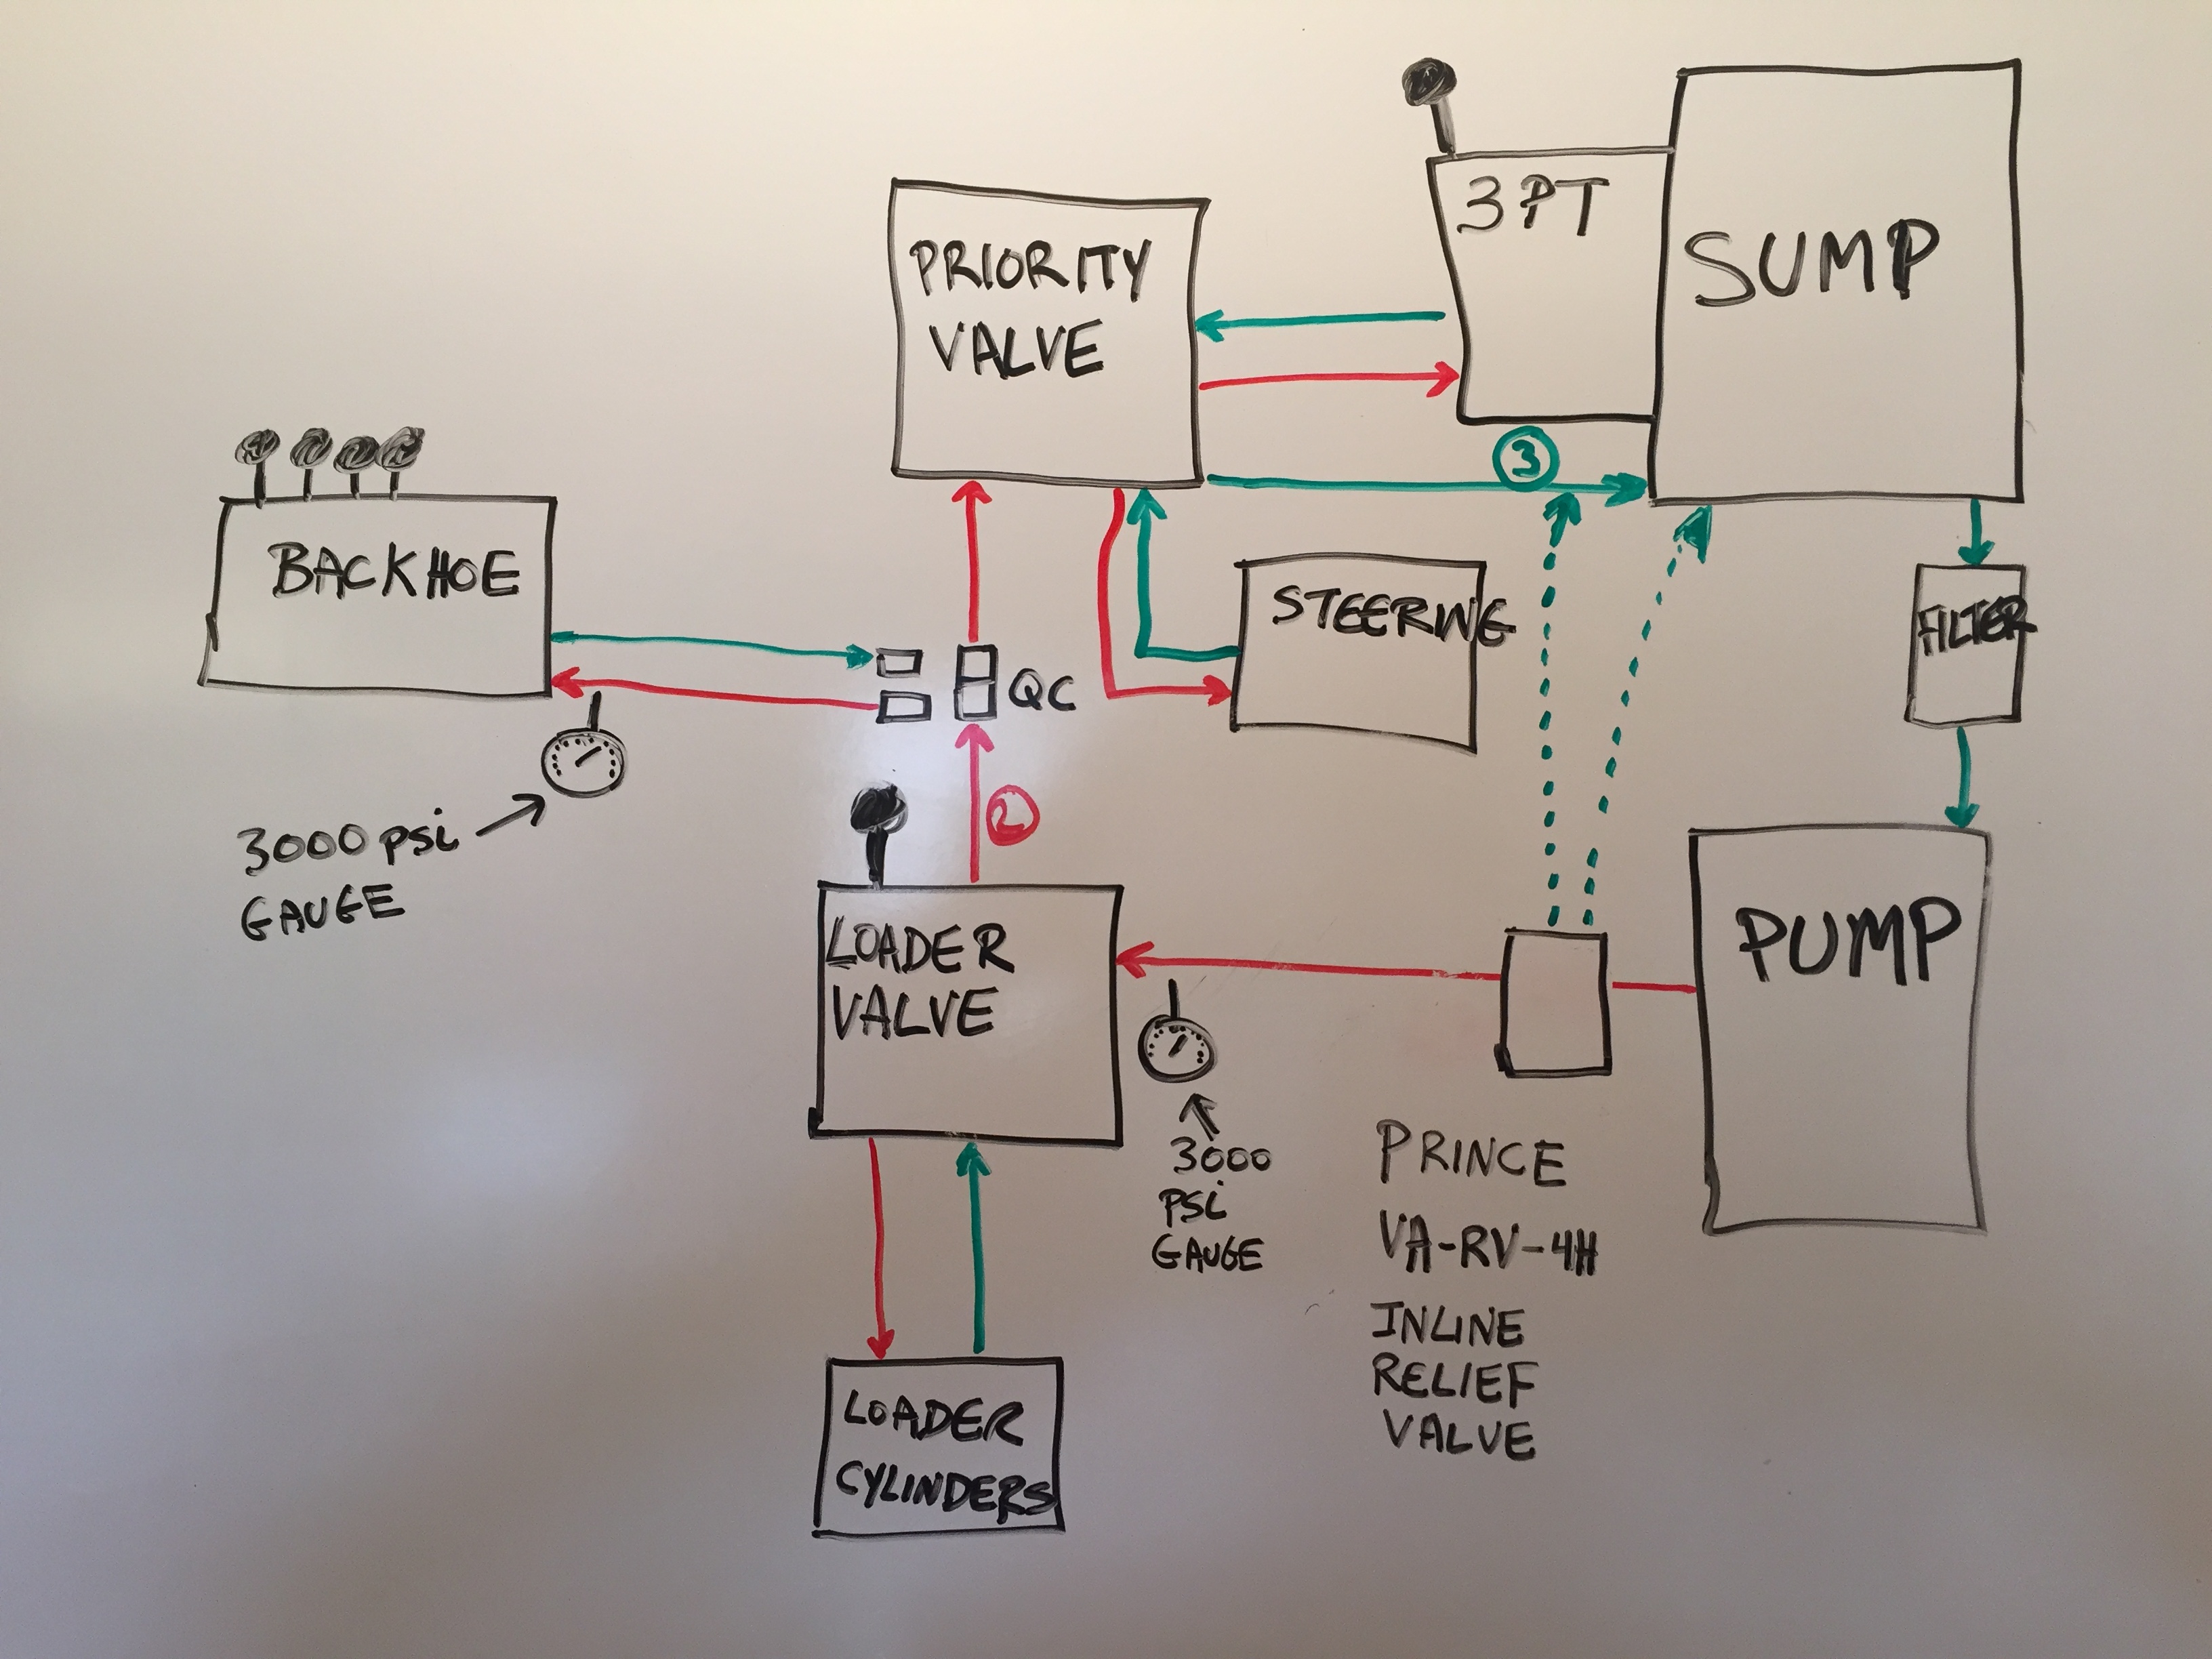 3PT
SUMP
PRIORITY
VALVE
3
BACKHOE
STEERING
FILTER
QC
3000 psi
GAUGE
2
LOADER
VALVE
PUMP
3000
PSi
GAUGE
PRINCE
VA-RV-4H
INLINE
RELIEF
VALVE
LOADER
CYLINDERS